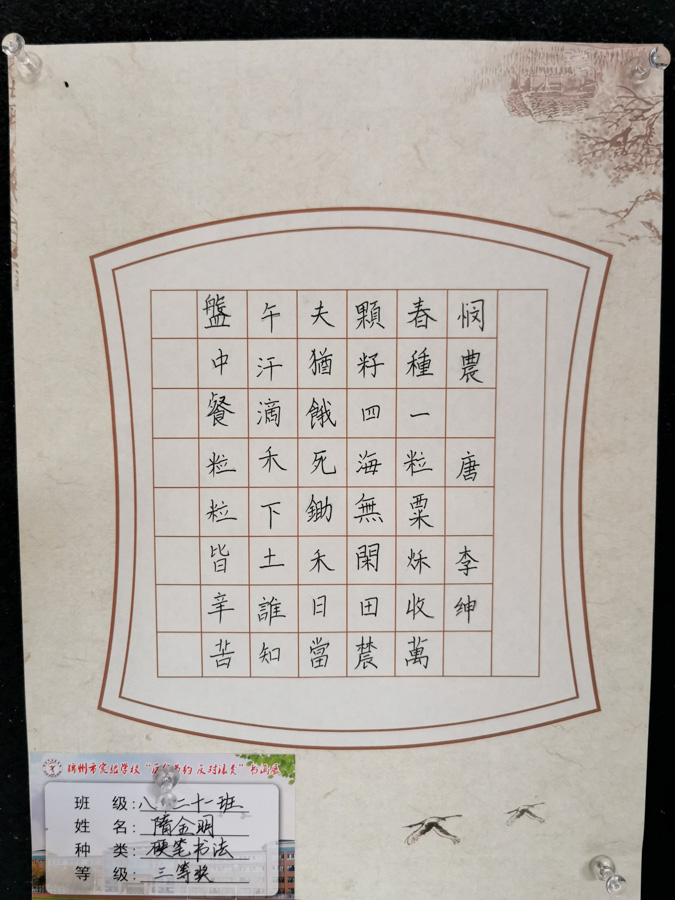 悯農 唐 李绅
春種一粒粟秌收萬
顆籽四海無閑田農
夫猶餓死鋤禾日當
午汗滴禾下土誰知
盤中餐粒粒皆辛苦
锦州市实验学校“厉行节约 反对浪费”书画展
班 级:八、二十一班
姓 名:隋金明
种 类:硬笔书法
等 级:三等奖